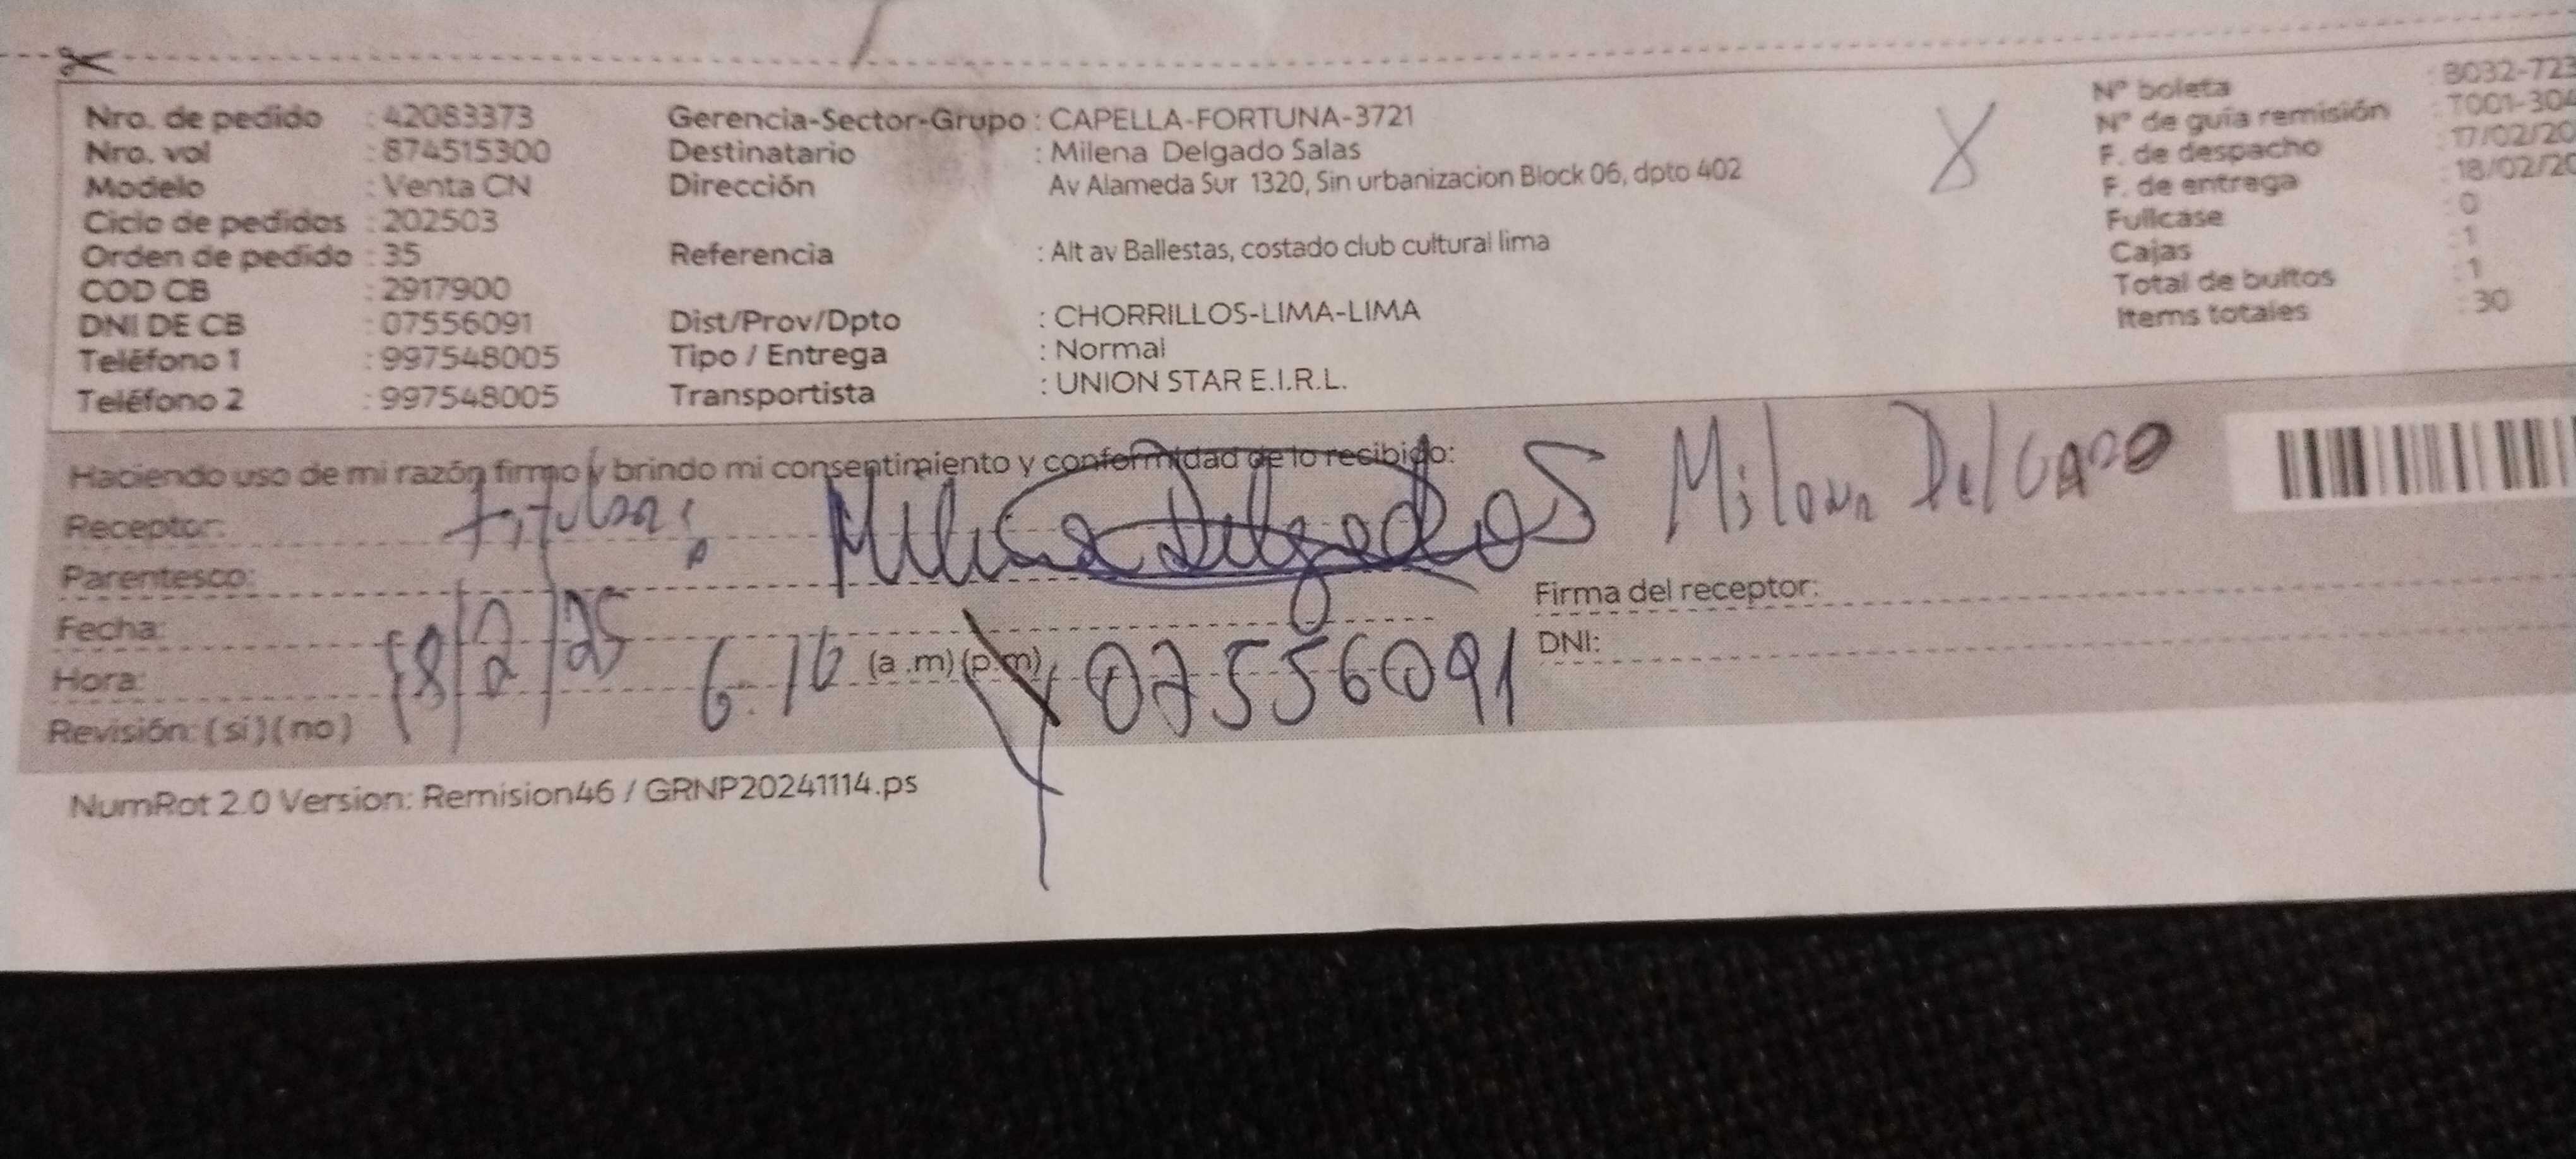 Nro. de pedido : 42083373
Nro. vol : 874515300
Modelo : Venta CN
Ciclo de pedidos : 202503
Orden de pedido : 35
COD CB : 2917900
DNI DE CB : 07556091
Teléfono 1 : 997548005
Teléfono 2 : 997548005
Gerencia-Sector-Grupo : CAPELLA-FORTUNA-3721
Destinatario : Milena Delgado Salas
Dirección Av Alameda Sur 1320, Sin urbanizacion Block 06, dpto 402
Referencia : Alt av Ballestas, costado club cultural lima
Dist/Prov/Dpto : CHORRILLOS-LIMA-LIMA
Tipo / Entrega : Normal
Transportista : UNION STAR E.I.R.L.
X
Nº boleta : B032-723
Nº de guía remisión : T001-304
F. de despacho : 17/02/20
F. de entrega : 18/02/20
Fullcase : 0
Cajas : 1
Total de bultos : 1
Items totales : 30
Haciendo uso de mi razón firmo y brindo mi consentimiento y conformidad de lo recibido:
Receptor: Milena Delgado S
Parentesco:
Fecha: 18/2/25
Hora: 6:16 (a .m) (p.m) 07556091
Revisión: (si) (no)
Firma del receptor:
DNI:
NumRot 2.0 Version: Remision46 / GRNP20241114.ps